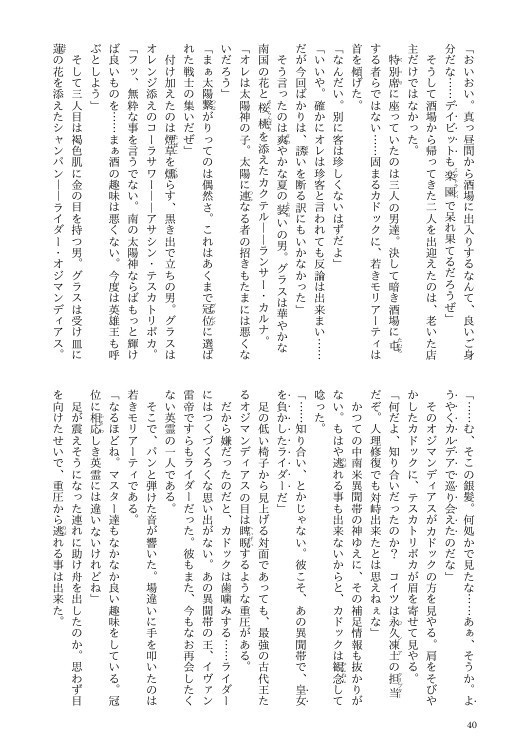 「おいおい。真っ昼間から酒場に出入りするなんて、良いご身
分だな……デイビットも楽園で呆れ果てるだろうぜ」
そうして酒場から帰ってきた二人を出迎えたのは、老いた店
主だけではなかった。
特別席に座っていたのは三人の男達。決して暗き酒場に屯
する者らではない……固まるカドックに、若きモリアーティは
首を傾げた。
「なんだい。別に客は珍しくないはずだよ」
「いいや。確かにオレは珍客と言われても反論は出来まい……
だが今回ばかりは、誘いを断る訳にもいかなかった」
そう言ったのは爽やかな夏の装いの男。グラスは華やかな
南国の花と桜桃を添えたカクテル――ランサー・カルナ。
「オレは太陽神の子。太陽に連なる者の招きもたまには悪くな
いだろう」
「まぁ太陽繋がりってのは偶然さ。これはあくまで冠位に選ば
れた戦士の集いだぜ」
付け加えたのは煙草を燻らす、黒き出で立ちの男。グラスは
オレンジ添えのコーラサワー――アサシン・テスカトリポカ。
「フッ、無粋な事を言うでない。南の太陽神ならばもっと輝け
ば良いものを……まぁ酒の趣味は悪くない。今度は英雄王も呼
ぶとしよう」
そして三人目は褐色肌に金の目を持つ男。グラスは受け皿に
蓮の花を添えたシャンパン――ライダー・オジマンディアス。
「……む、そこの銀髪。何処かで見たな……あぁ、そうか。よ
うやくカルデアで巡り会えたのだな」
そのオジマンディアスがカドックの方を見やる。肩をそびや
かしたカドックに、テスカトリポカが眉を寄せて見やる。
「何だよ、知り合いだったのか？　コイツは永久凍土の担当
だぞ。人理修復でも対峙出来たとは思えねぇな」
かつての中南米異聞帯の神ゆえに、その補足情報も抜かりが
ない。もはや逃れる事も出来ないからと、カドックは観念して
唸った。
「……知り合い、とかじゃない。彼こそ、あの異聞帯で、皇女
を負かしたライダーだ」
足の低い椅子から見上げる対面であっても、最強の古代王た
るオジマンディアスの目は睥睨するような重圧がある。
だから嫌だったのだと、カドックは歯噛みする……ライダー
にはつくづくろくな思い出がない。あの異聞帯の王、イヴァン
雷帝ですらもライダーだった。彼もまた、今もなお再会したく
ない英霊の一人である。
そこで、パンと弾けた音が響いた。場違いに手を叩いたのは
若きモリアーティである。
「なるほどね。マスター達もなかなか良い趣味をしている。冠
位に相応しき英霊には違いないけれどね」
足が震えそうになった連れに助け舟を出したのか。思わず目
を向けたせいで、重圧から逃れる事は出来た。
40